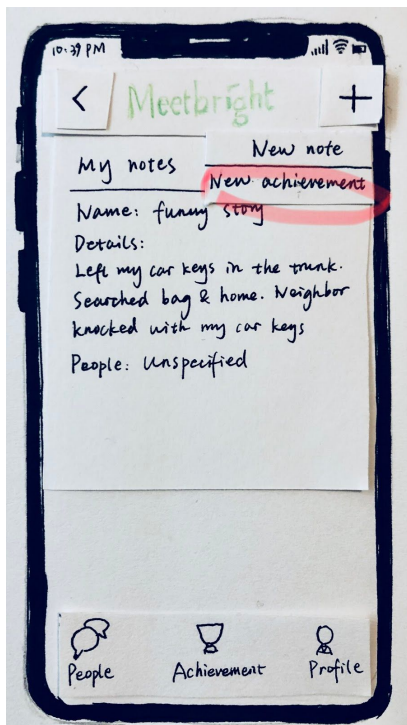 10:39 PM
<
Meetbright
+
New note
My notes
New achievement
Name: funny story
Details:
Left my car keys in the trunk.
Searched bag & home. Neighbor
knocked with my car keys
People: Unspecified
People
Achievement
Profile